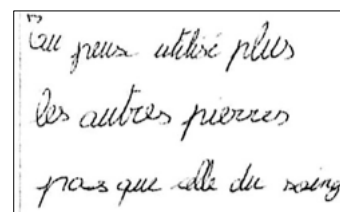 Tu peux utilisé plus
les autres pierres
pas que elle du soing